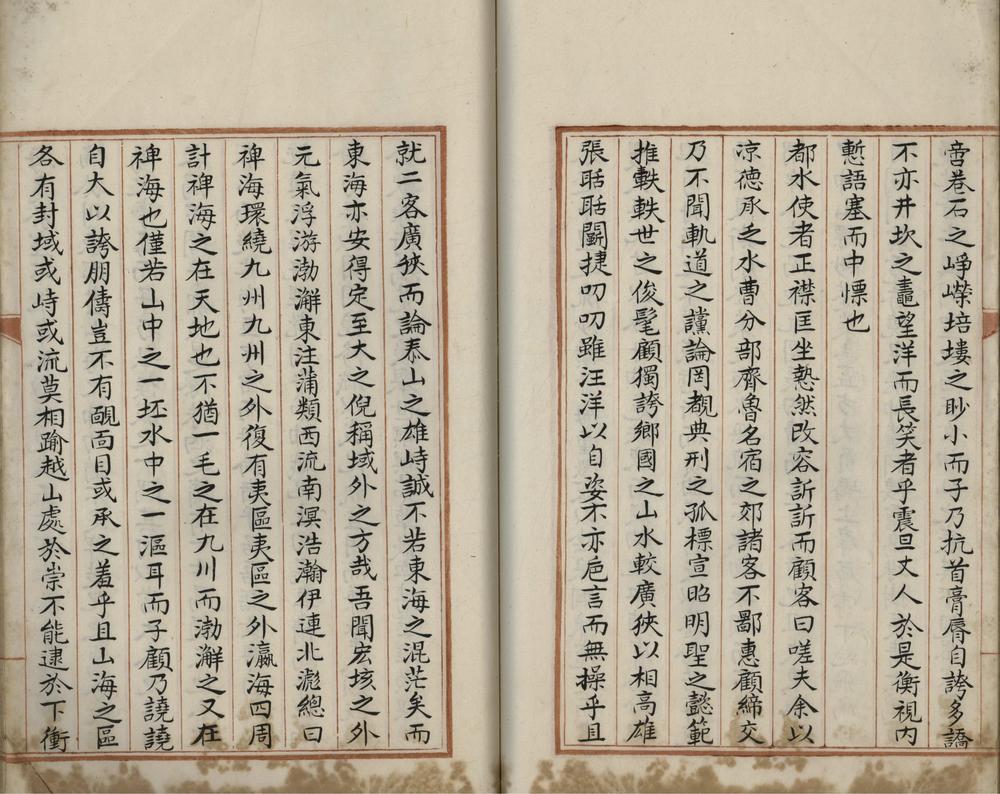 啻巷石之崢嶸培塿之眇小而子乃抗首膏脣自誇多譎
不亦井坎之鼃望洋而長笑者乎震旦丈人於是衡視内
慙語塞而中慓也
都水使者正襟匡坐慹然改容訢訢而顧客曰嗟夫余以
凉德承乏水曹分部齊魯名宿之郊諸客不鄙惠顧締交
乃不聞軌道之讜論罔覩典刑之孤標宣昭明聖之懿範
推軼軼世之俊髦顧獨誇鄉國之山水較廣狹以相高雄
張聒聒鬭捷叨叨雖汪洋以自姿不亦巵言而無操乎且
就二客廣狹而論泰山之雄峙誠不若東海之混茫矣而
東海亦安得定至大之倪稱域外之方哉吾聞宏垓之外
元氣浮游渤澥東注蒲類西流南溟浩瀚伊連北瀰總曰
裨海環繞九州九州之外復有夷區夷區之外瀛海四周
計裨海之在天地也不猶一毛之在九川而渤澥之又在
裨海也僅若山中之一坯水中之一漚耳而子顧乃譊譊
自大以誇朋儔豈不有靦面目或承之羞乎且山海之區
各有封域或峙或流莫相踰越山處於崇不能逮於下衝